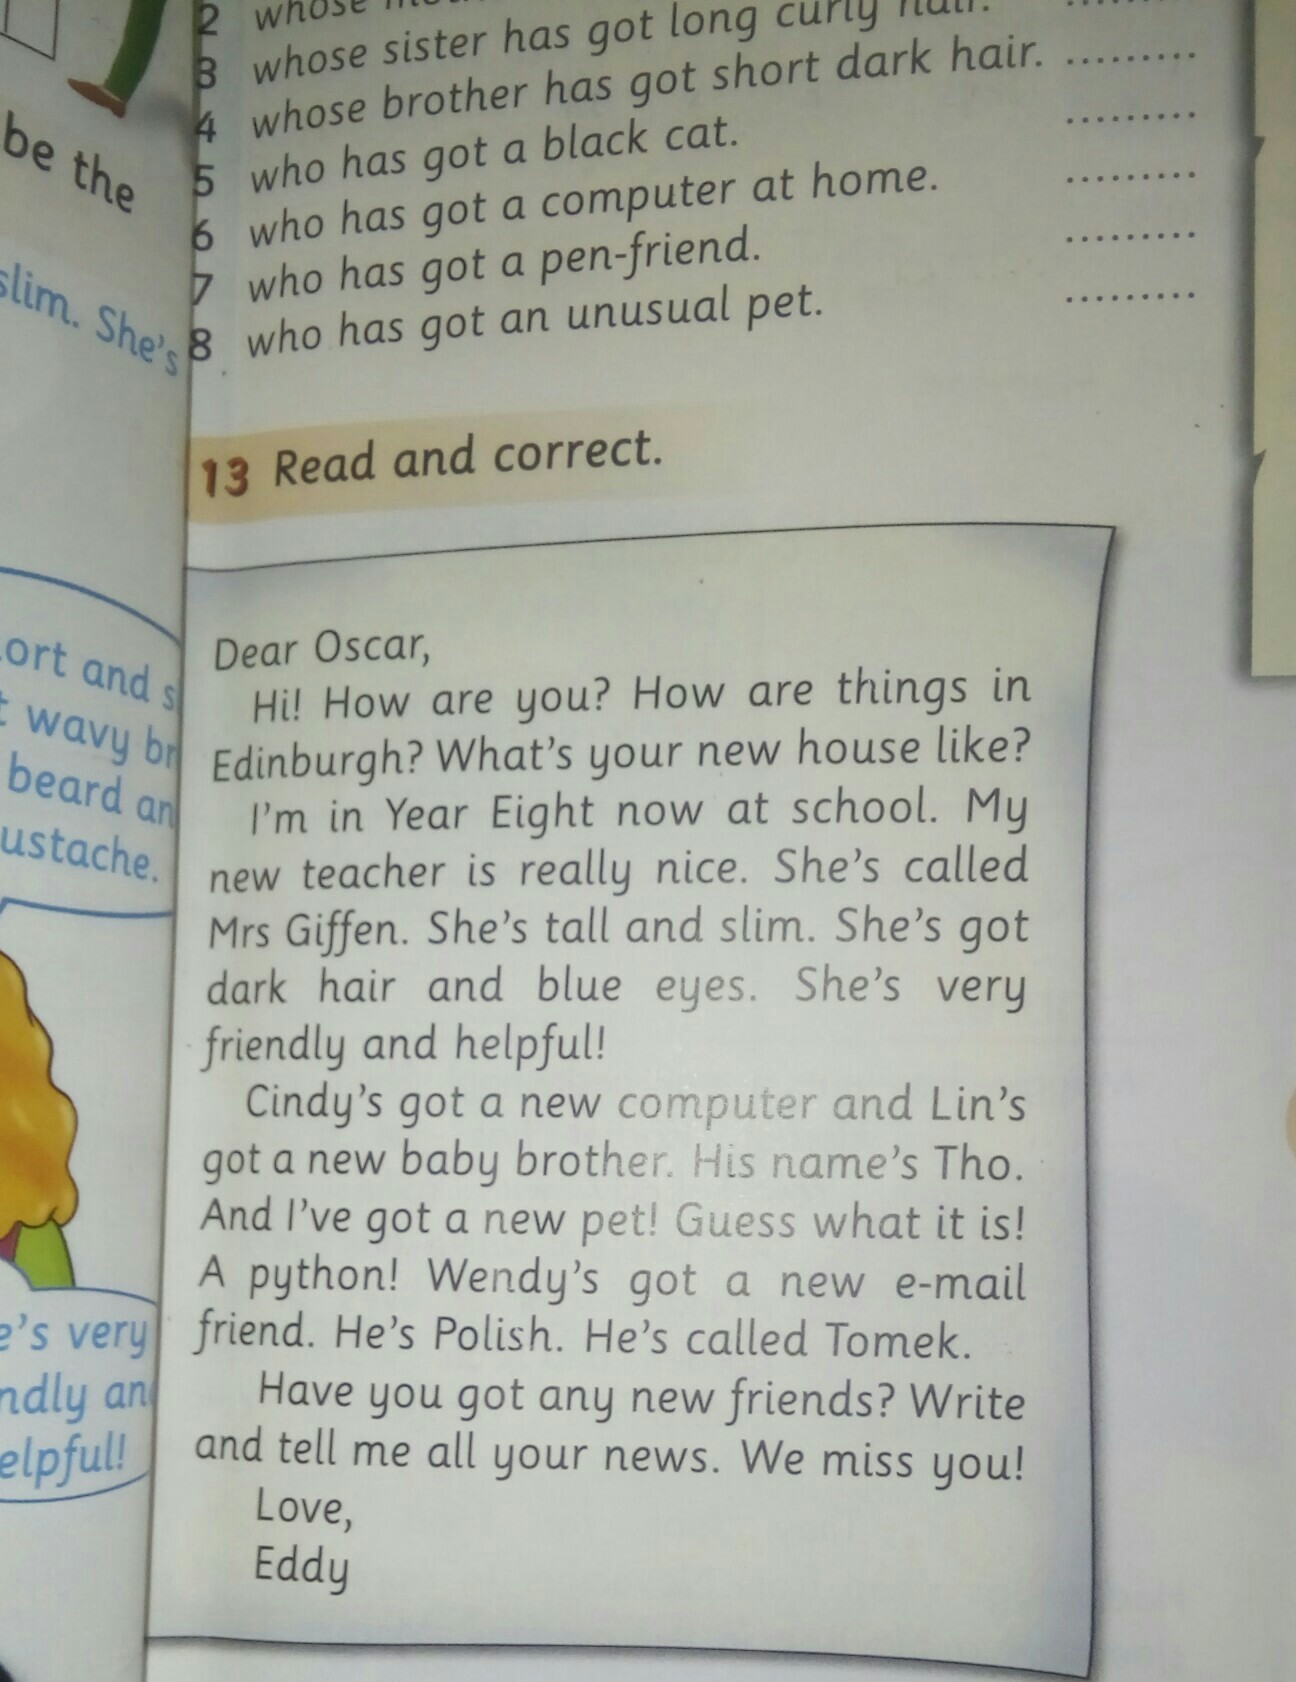 2 whose
3 whose sister has got long curly
4 whose brother has got short dark hair. .........
5 who has got a black cat. .........
6 who has got a computer at home. .........
7 who has got a pen-friend. .........
8 who has got an unusual pet. .........
be the
slim. She's
13 Read and correct.
Dear Oscar,
Hi! How are you? How are things in
Edinburgh? What's your new house like?
I'm in Year Eight now at school. My
new teacher is really nice. She's called
Mrs Giffen. She's tall and slim. She's got
dark hair and blue eyes. She's very
friendly and helpful!
Cindy's got a new computer and Lin's
got a new baby brother. His name's Tho.
And I've got a new pet! Guess what it is!
A python! Wendy's got a new e-mail
friend. He's Polish. He's called Tomek.
Have you got any new friends? Write
and tell me all your news. We miss you!
Love,
Eddy
ort and s
wavy br
beard an
ustache.
e's very
ndly an
elpful!